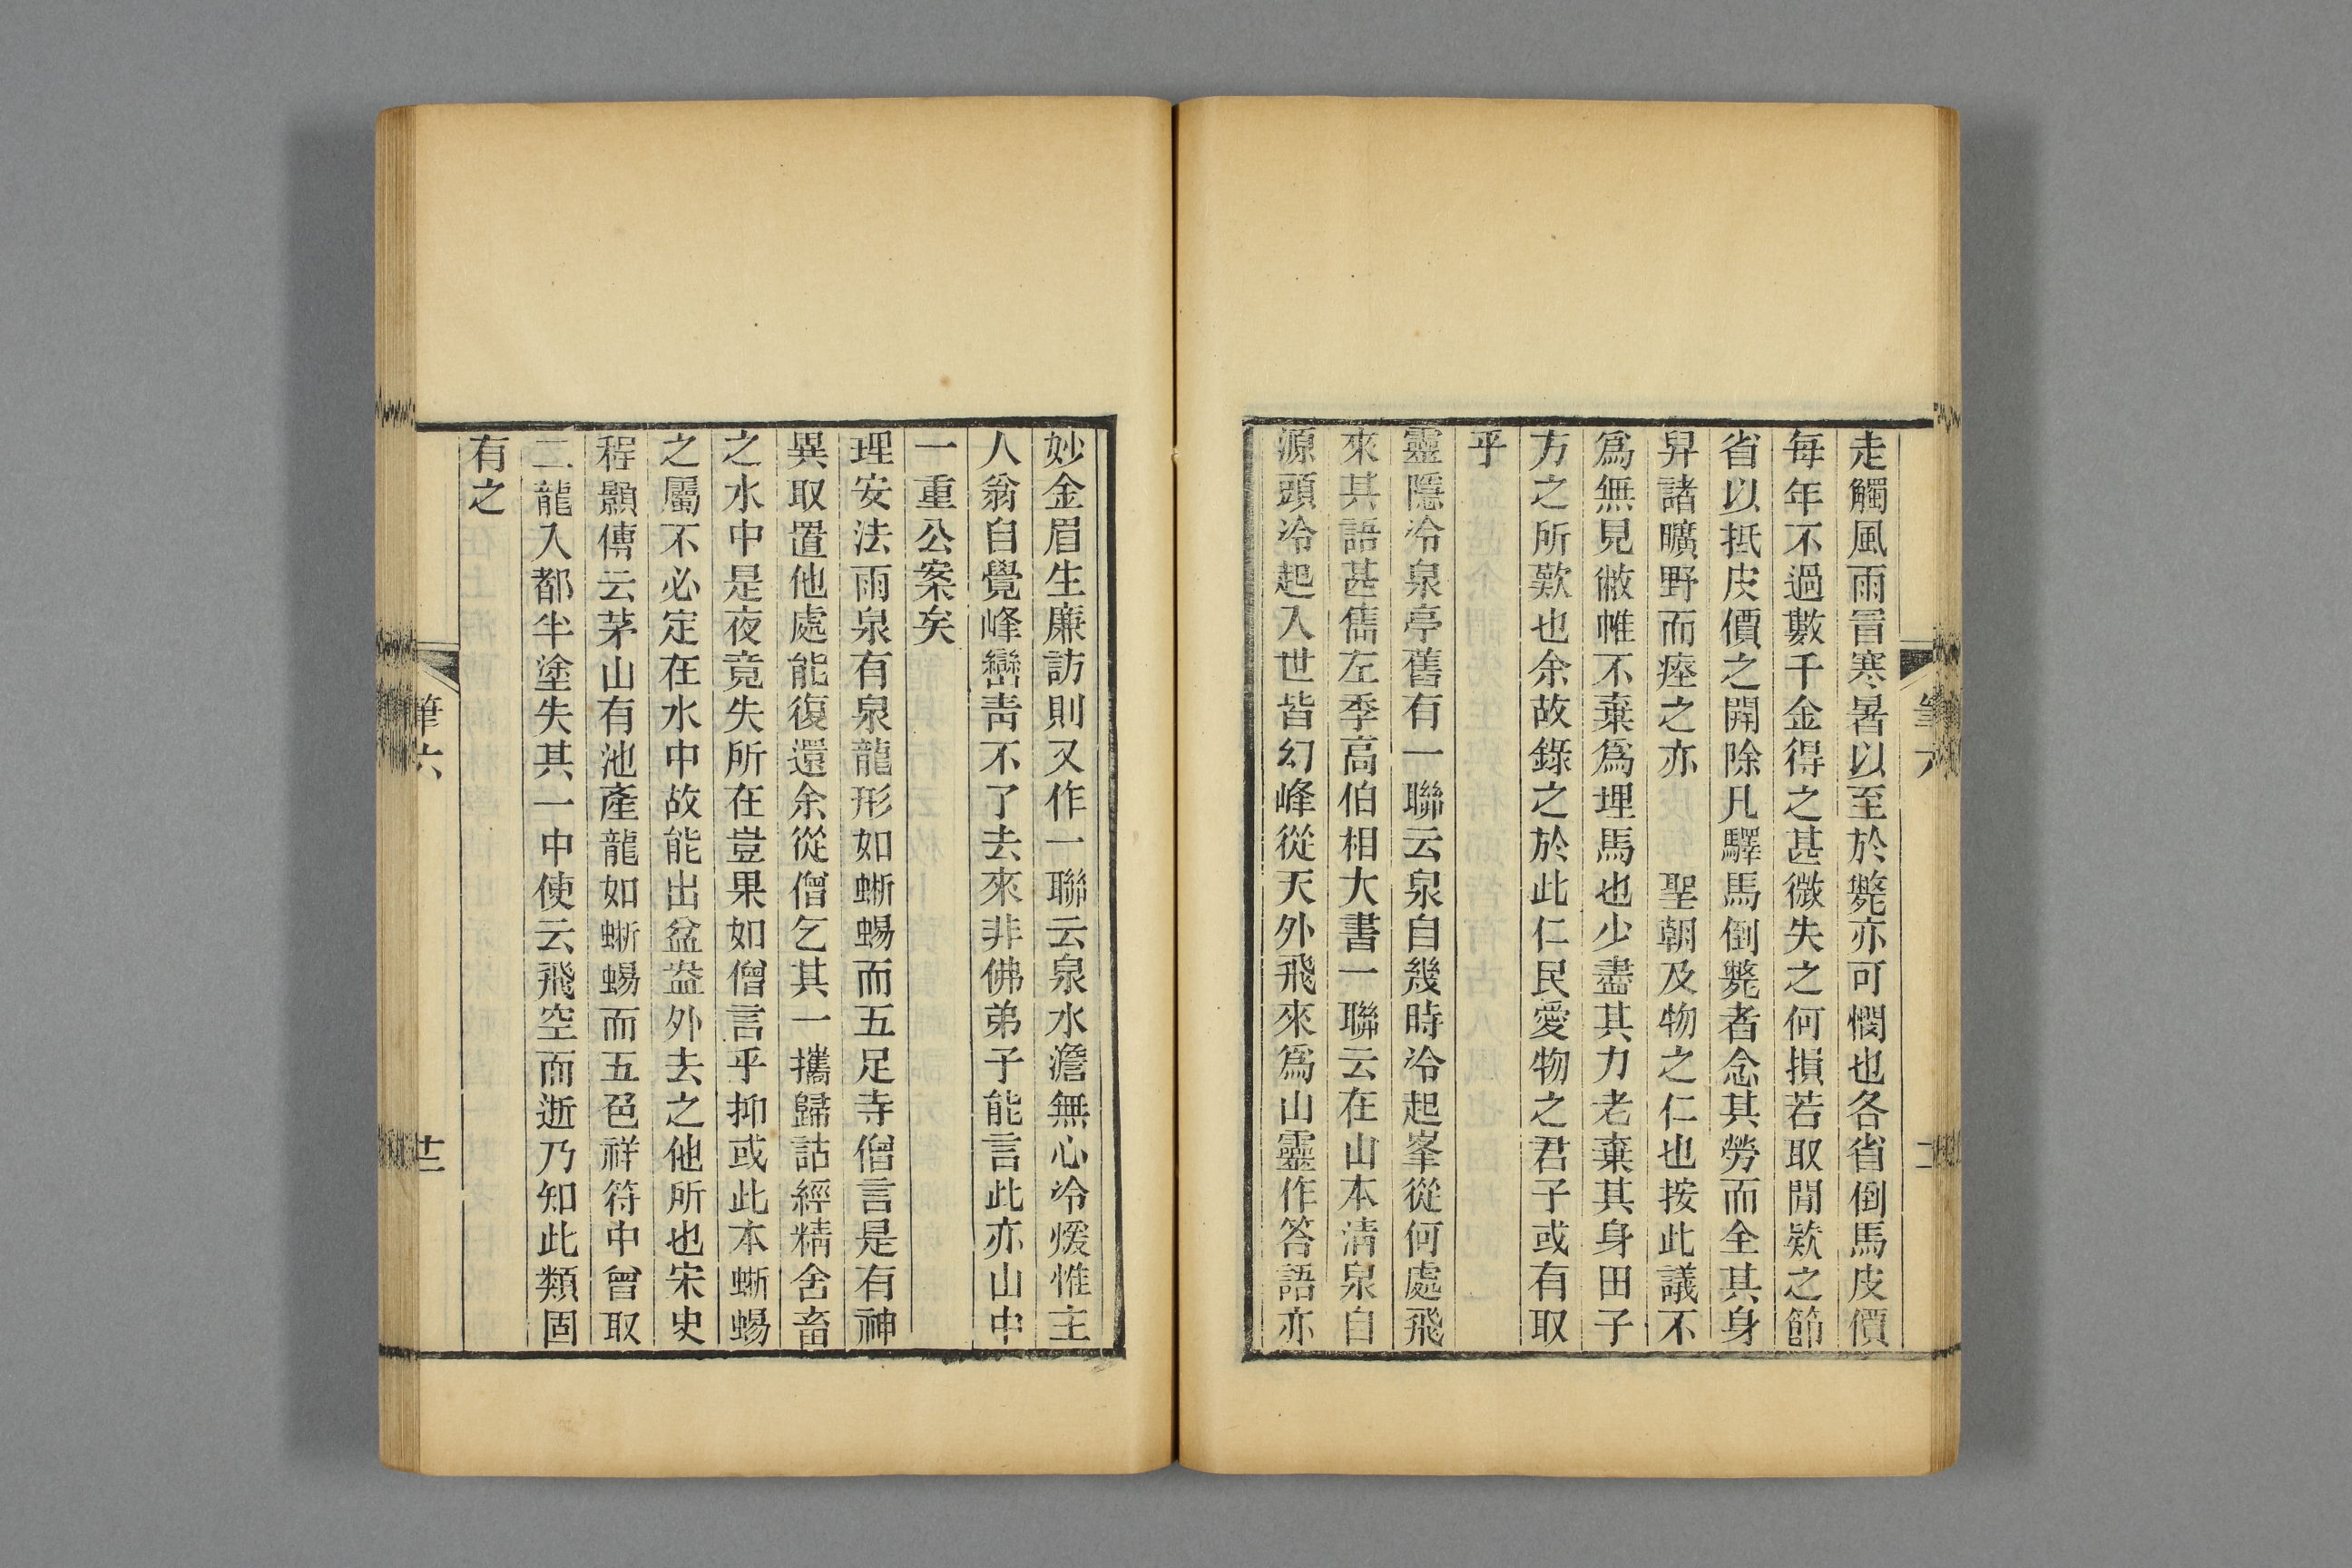 走觸風雨冒寒暑以至於斃亦可憫也各省倒馬皮價
每年不過數千金得之甚微失之何損若取閒款之節
省以抵皮價之開除凡驛馬倒斃者念其勞而全其身
舁諸曠野而瘞之亦 聖朝及物之仁也按此議不
爲無見敝帷不棄爲埋馬也少盡其力老棄其身田子
方之所歎也余故錄之於此仁民愛物之君子或有取
乎
靈隱冷泉亭舊有一聯云泉自幾時冷起峯從何處飛
來其語甚雋左季高伯相大書一聯云在山本清泉自
源頭冷起入世皆幻峰從天外飛來爲山靈作答語亦
妙金眉生廉訪則又作一聯云泉水澹無心冷煖惟主
人翁自覺峰巒靑不了去來非佛弟子能言此亦山中
一重公案矣
理安法雨泉有泉龍形如蜥蜴而五足寺僧言是有神
異取置他處能復還余從僧乞其一攜歸詁經精舍畜
之水中是夜竟失所在豈果如僧言乎抑或此本蜥蜴
之屬不必定在水中故能出盆盎外去之他所也宋史
程顥傳云茅山有池產龍如蜥蜴而五色祥符中曾取
二龍入都半塗失其一中使云飛空而逝乃知此類固
有之
筆六
廿二